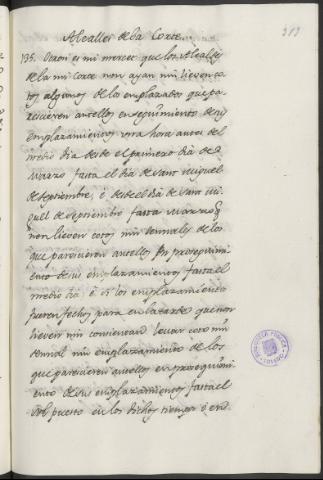 Alcalles de la Corte.
313
135. Otrosi es mi merced que los Alcalles
de la mi Corte non ayan nin lieven co
tos algunos de los emplazados que pa
recieren antellos en seguimiento de sus
emplazamientos una hora antes del
medio dia desde el primero dia de
Marzo fasta el dia de Sant Miguel
de Septiembre, é desde el dia de Sant Mi
guel de Septiembre fasta Marzo
non lieven cotos nin señales de los
que parecieren antellos en proseguimi
ento de sus emplazamientos fasta el
medio dia é si los emplazamientos
fueren fechos para en la tarde que non
lieven nin consientan levar coto nin
señal nin emplazamiento de los
que parecieren antellos en proseguimi
ento de sus emplazamientos fasta el
Sol puesto en los dichos tiempos é en
BIBLIOTECA PUBLICA
TOLEDO